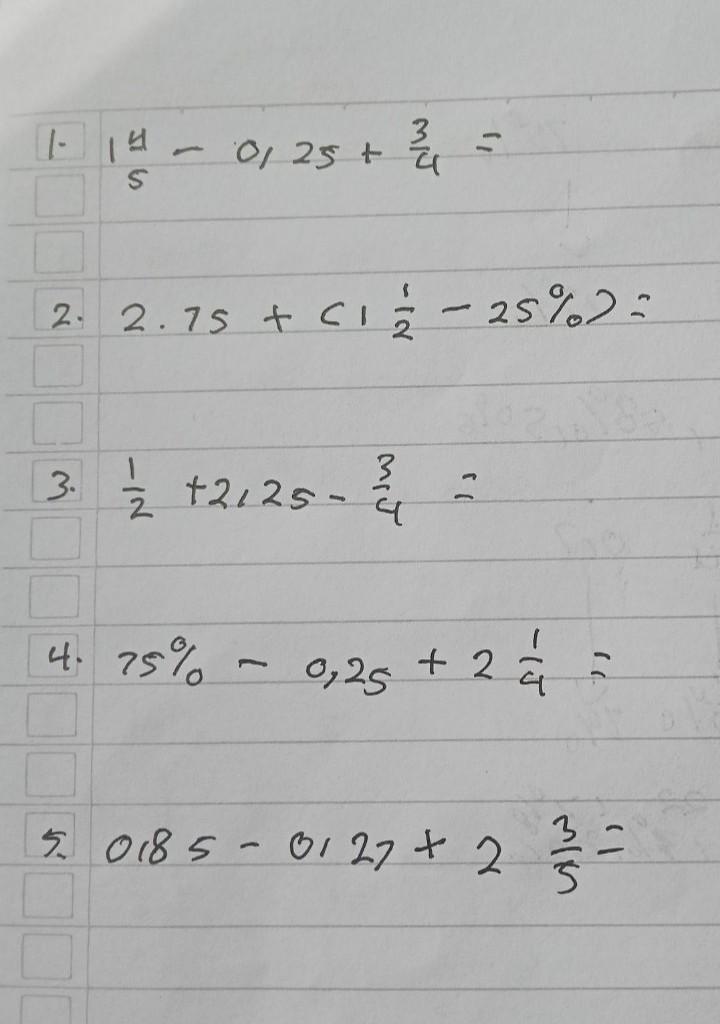 1. 1 4/5 - 0,25 + 3/4 =
2. 2.75 + (1 1/2 - 25%) =
3. 1/2 + 2,25 - 3/4 =
4. 75% - 0,25 + 2 1/4 =
5. 0,85 - 0,27 + 2 3/5 =